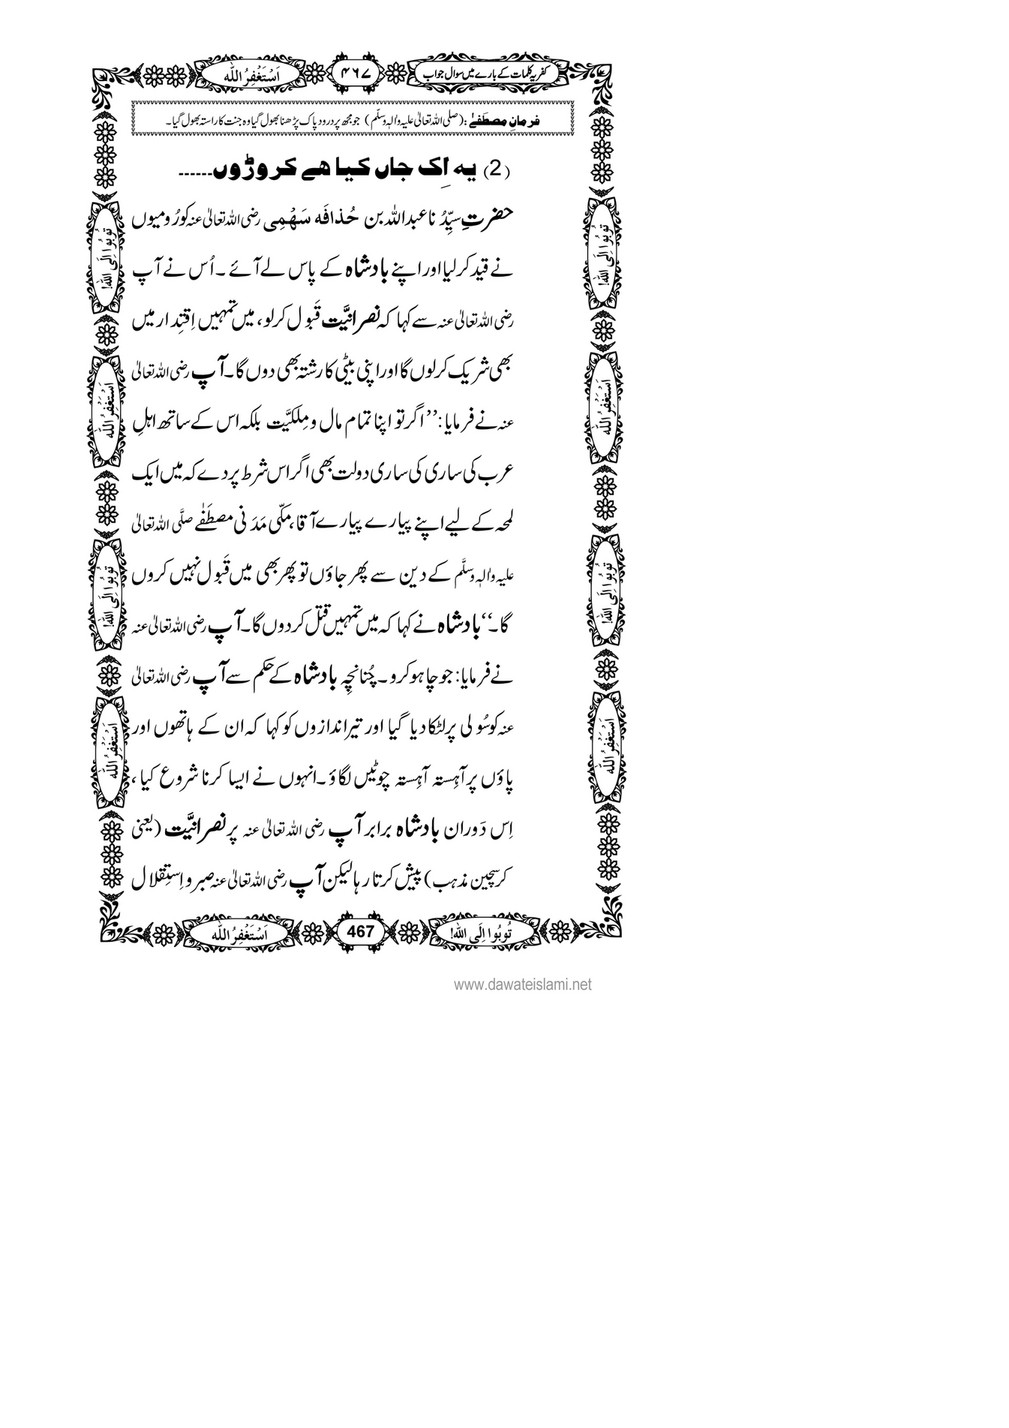 کفریہ کلمات کے بارے میں سوال جواب
٤٦٧
اَسْتَغْفِرُ اللّٰه
فرمانِ مصطَفٰے : (صلی اللہ تعالیٰ علیہ والہٖ وسلّم) جو مجھ پر درود پاک پڑھنا بھول گیا وہ جنت کا راستہ بھول گیا۔
(2) یہ اِک جاں کیا ھے کروڑوں......
حضرتِ سیِّدُ نا عبداللہ بن حُذافَه سَهْمِی رضی اللہ تعالیٰ عنہ کو رُومیوں
نے قید کر لیا اور اپنے بادشاہ کے پاس لے آئے ۔ اُس نے آپ
رضی اللہ تعالیٰ عنہ سے کہا کہ نصرانیَّت قَبول کرلو، میں تمہیں اِقتِدار میں
بھی شریک کرلوں گا اور اپنی بیٹی کا رشتہ بھی دوں گا۔ آپ رضی اللہ تعالیٰ
عنہ نے فرمایا: ’’اگر تو اپنا تمام مال و مِلکیَّت بلکہ اس کے ساتھ اہلِ
عرب کی ساری کی ساری دولت بھی اگر اس شرط پر دے کہ میں ایک
لمحہ کے لیے اپنے پیارے پیارے آقا، مکّی مَدَنی مصطَفٰے صلَّی اللہ تعالیٰ
علیہ والہٖ وسلَّم کے دین سے پھر جاؤں تو پھر بھی میں قَبول نہیں کروں
گا۔‘‘ بادشاہ نے کہا کہ میں تمہیں قتل کردوں گا۔ آپ رضی اللہ تعالیٰ عنہ
نے فرمایا: جو چاہو کرو ۔ چُنانچِہ بادشاہ کے حکم سے آپ رضی اللہ تعالیٰ
عنہ کو سُولی پر لٹکا دیا گیا اور تیر اندازوں کو کہا کہ ان کے ہاتھوں اور
پاؤں پر آہِستہ آہِستہ چوٹیں لگاؤ ۔ انہوں نے ایسا کرنا شروع کیا،
اِس دَوران بادشاہ برابر آپ رضی اللہ تعالیٰ عنہ پر نصرانیَّت (یعنی
کرسچین مذہب) پیش کرتا رہا لیکن آپ رضی اللہ تعالیٰ عنہ صبر و اِستِقلال
تُوبُوا اِلَی اللّٰه!
اَسْتَغْفِرُ اللّٰه
تُوبُوا اِلَی اللّٰه!
اَسْتَغْفِرُ اللّٰه
تُوبُوا اِلَی اللّٰه!
اَسْتَغْفِرُ اللّٰه
تُوبُوا اِلَی اللّٰه!
اَسْتَغْفِرُ اللّٰه
تُوبُوا اِلَی اللّٰه!
467
اَسْتَغْفِرُ اللّٰه
www.dawateislami.net